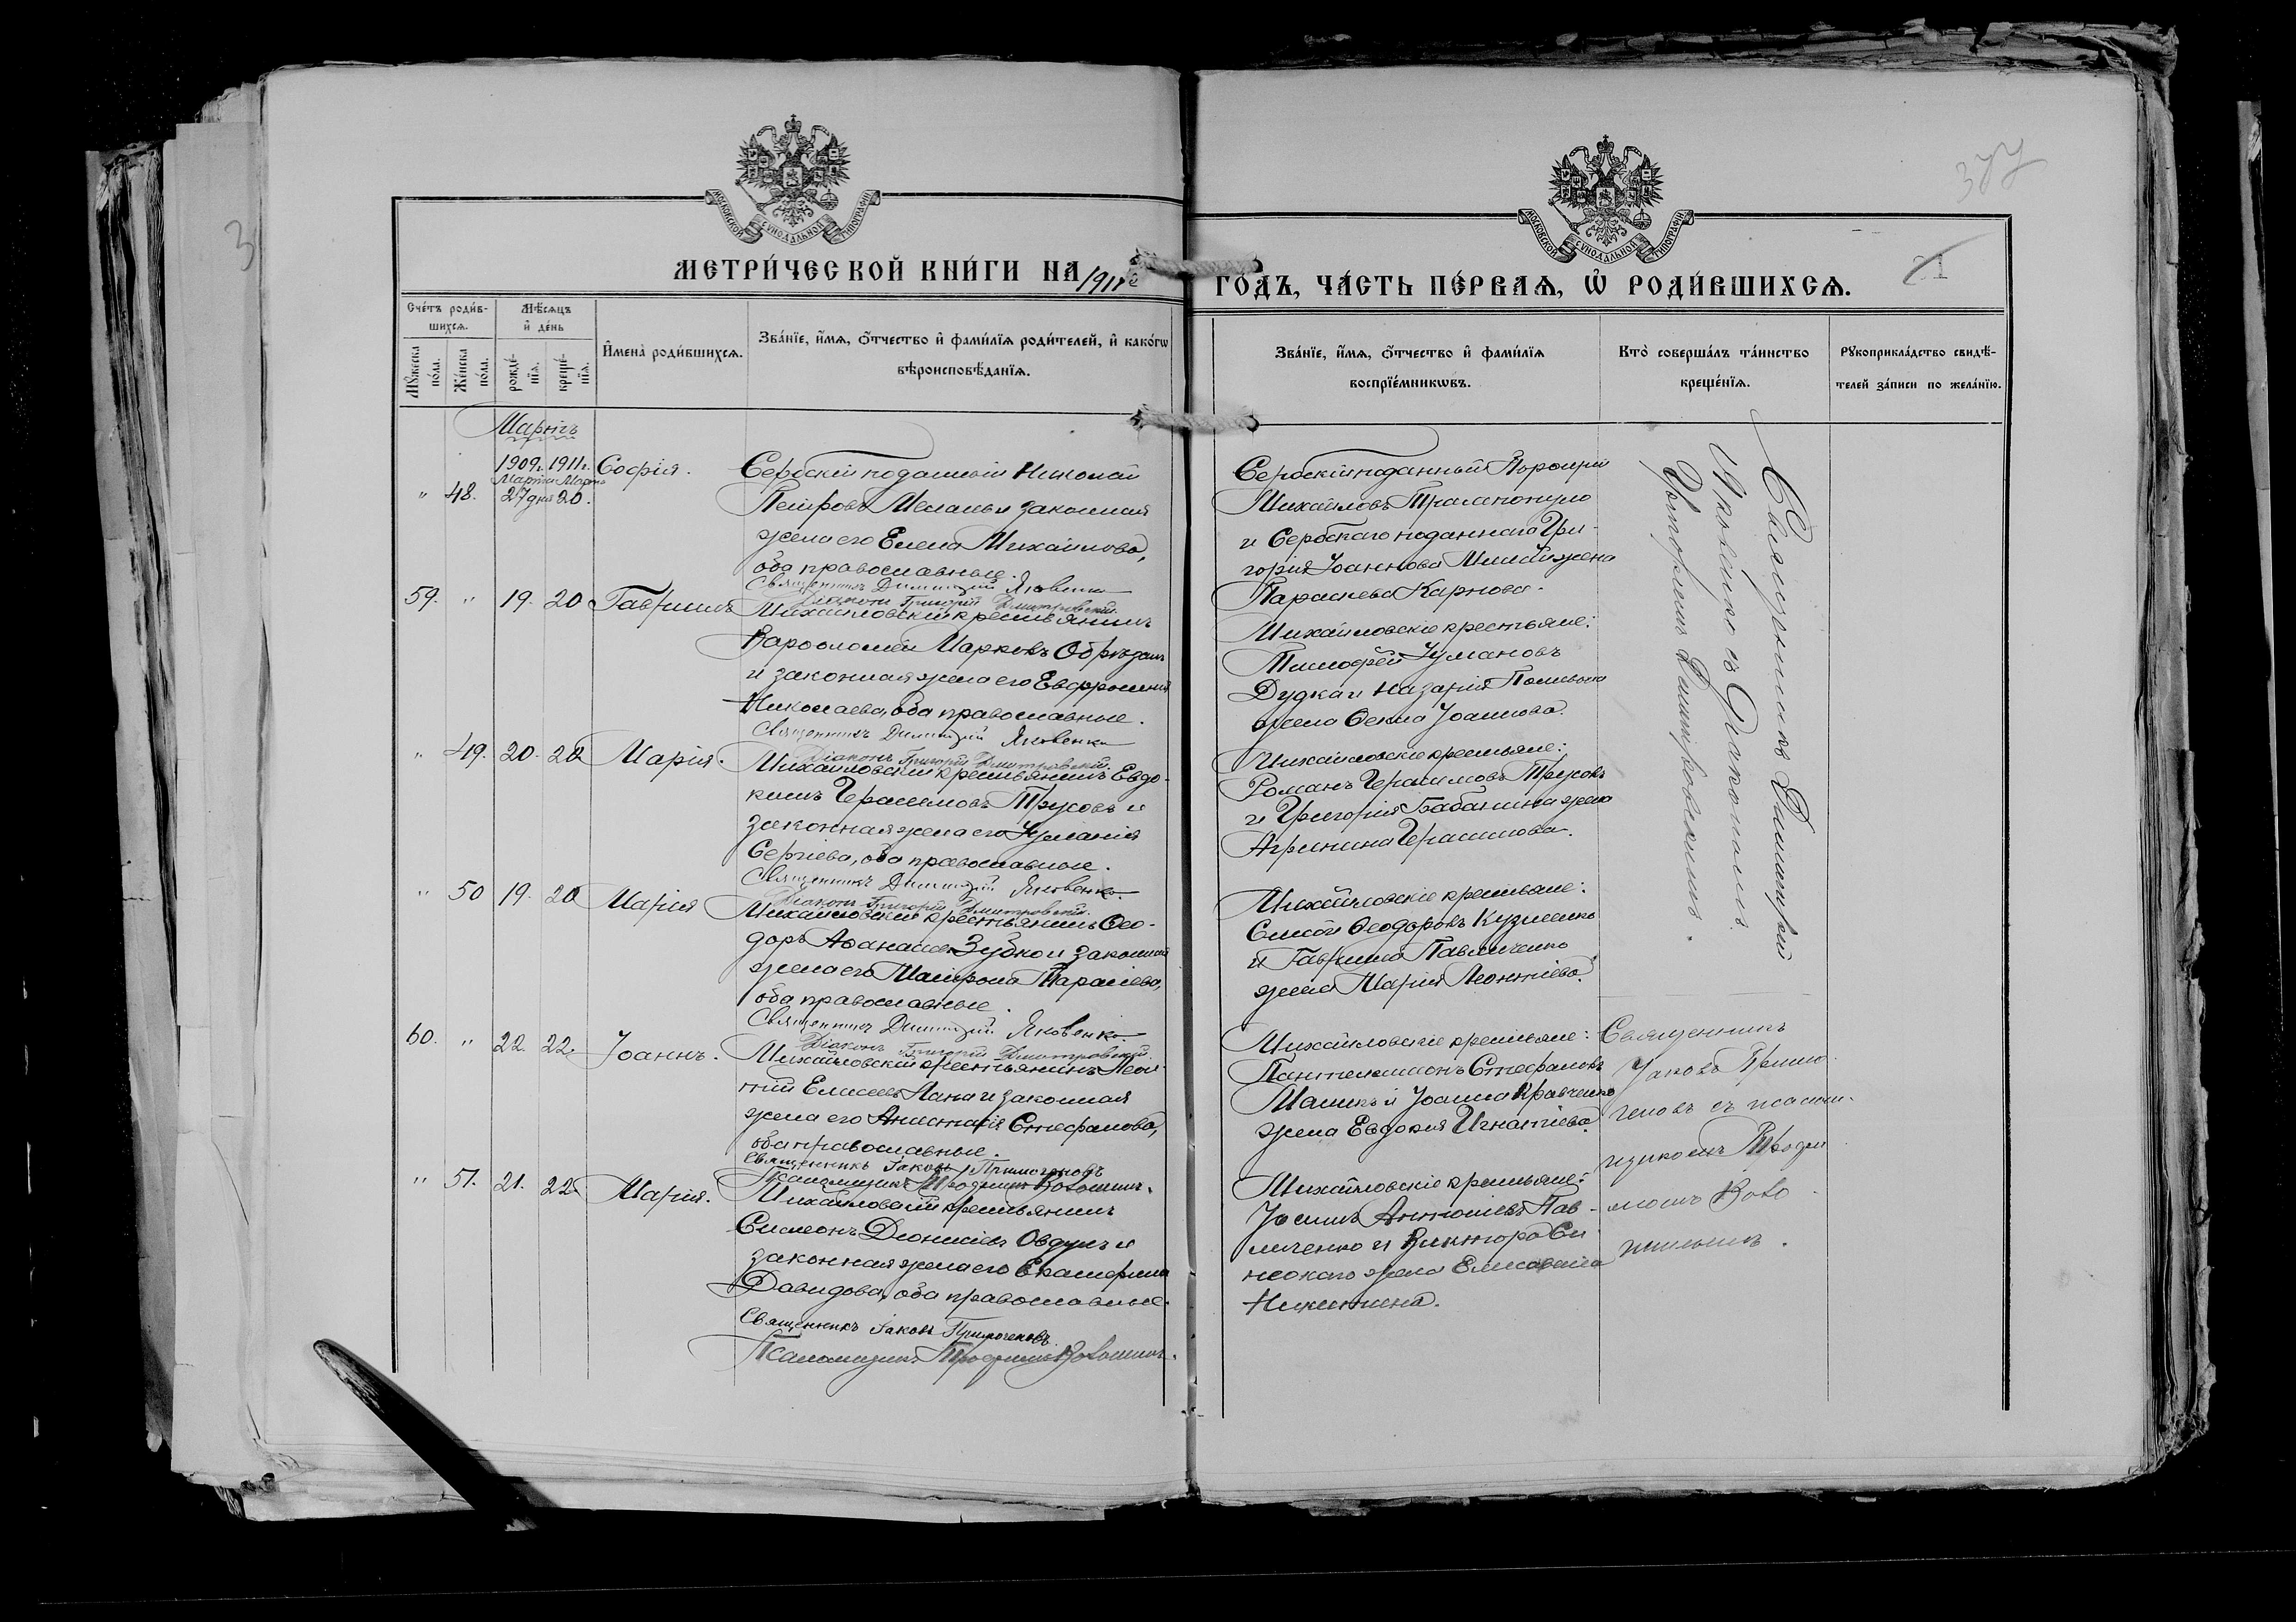 377
МОСКОВСКОЙ СѴНОДАЛЬНОЙ ТИПОГРАФІИ
МОСКОВСКОЙ СѴНОДАЛЬНОЙ ТИПОГРАФІИ
МЕТРИ́ЧЕСКОЙ КНИ́ГИ НА 1911й
ГО́ДЪ, ЧА́СТЬ ПЕ́РВАѦ, Ѽ РОДИ́ВШИХСѦ.
21
Сче́тъ роди́в-
шихсѧ.
Мꙋ́жеска
по́ла.
Же́нска
по́ла.
Мѣ́сѧцъ
и҆ де́нь
рожде́-
нїѧ.
креще́-
нїѧ.
И҆мена̀ роди́вшихсѧ.
Зва́нїе, и҆́мѧ, ѻ҆́тчество и҆ фами́лїѧ роди́телей, и҆ како́гѡ
вѣроисповѣ́данїѧ.
Зва́нїе, и҆́мѧ, ѻ҆́тчество и҆ фами́лїѧ
воспрїе́мникѡвъ.
Кто̀ соверша́лъ та́инство
креще́нїѧ.
Рꙋкоприкла́дство свидѣ́-
телей за́писи по жела́нїю.
Мартъ
1909г. 1911г.
Марта Марта
" 48. 27дня 20.
Софія.
Сербскій подданный Николай
Петровъ и законная
жена его Елена Михайлова,
оба православные.
Священникъ Димитрій Яковенко
Діаконъ Григорій Дмитровскій.
Сербскій подданный
Михайловъ
и Сербскаго подданнаго Гри-
горія Іоаннова жена
Параскева Карпова.
59. " 19. 20
Гавріилъ
Михайловскій крестьянинъ
Варѳоломей Марковъ
и законная жена его Евфросинія
Николаева, оба православные.
Священникъ Димитрій Яковенко
Діаконъ Григорій Дмитровскій.
Михайловскіе крестьяне:
Тимофей
Дудка и Назарія
жена Ѳекла Іоаннова.
" 49. 20. 20
Марія.
Михайловскій крестьянинъ Евдо-
кимъ Герасимовъ Трусовъ и
законная жена его Іуліанія
Сергіева, оба православные.
Священникъ Димитрій Яковенко
Діаконъ Григорій Дмитровскій.
Михайловскіе крестьяне:
Романъ Герасимовъ Трусовъ
и Григорія Бабанина жена
Агрипина Герасимова.
" 50 19. 20
Марія
Михайловскій крестьянинъ Ѳео-
доръ Аѳанасіевъ Зубко и законная
жена его Матрона Тарасіева,
оба православные.
Священникъ Димитрій Яковенко
Діаконъ Григорій Дмитровскій.
Михайловскіе крестьяне:
Ѳеодоровъ Кузменко
и Гавріила Павличенко
жена Марія Леонтіева.
Священникъ Димитрій
Яковенко съ Діакономъ
Григоріемъ Дмитровскимъ.
60. " 22. 22.
Іоаннъ.
Михайловскій крестьянинъ Леон-
тій Елисеевъ и законная
жена его Анастасія Стефанова,
оба православные.
Священникъ Іаковъ Примоченовъ
Псаломщикъ Трофимъ
Михайловскіе крестьяне:
Пантелеимонъ Стефановъ
и Іоанна Кравченко
жена Евдокія Игнатіева.
Священникъ
Іаковъ Примо-
ченовъ съ псалом-
щикомъ Трофи-
момъ
" 51. 21. 22.
Марія.
Михайловскій крестьянинъ
Симеонъ Діонисіевъ Овдунъ и
законная жена его Екатерина
Давидова, оба православные.
Священникъ Іаковъ Примоченовъ
Псаломщикъ Трофимъ
Михайловскіе крестьяне:
Антоніевъ Пав-
личенко и Виктора Си-
жена Елисавета
Никитина.